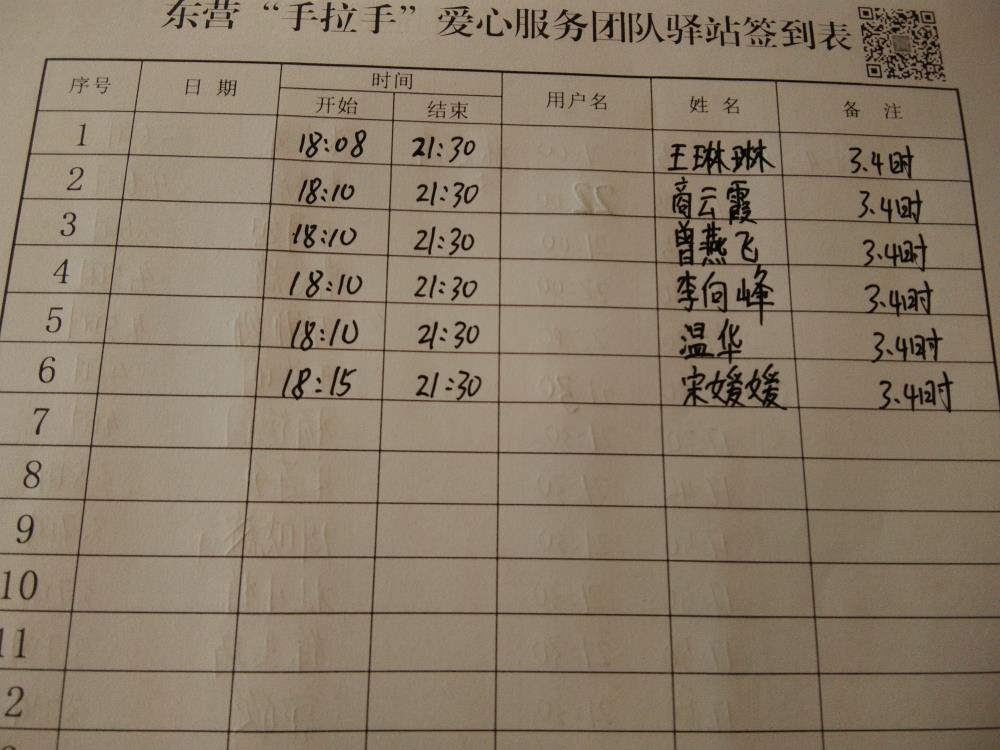 东营“手拉手”爱心服务团队驿站签到表
序号 日期 时间 用户名 姓名 备注
开始 结束
1 18:08 21:30 王琳琳 3.4时
2 18:10 21:30 商云霞 3.4时
3 18:10 21:30 曾燕飞 3.4时
4 18:10 21:30 李向峰 3.4时
5 18:10 21:30 温华 3.4时
6 18:15 21:30 宋媛媛 3.4时
7
8
9
10
11
2